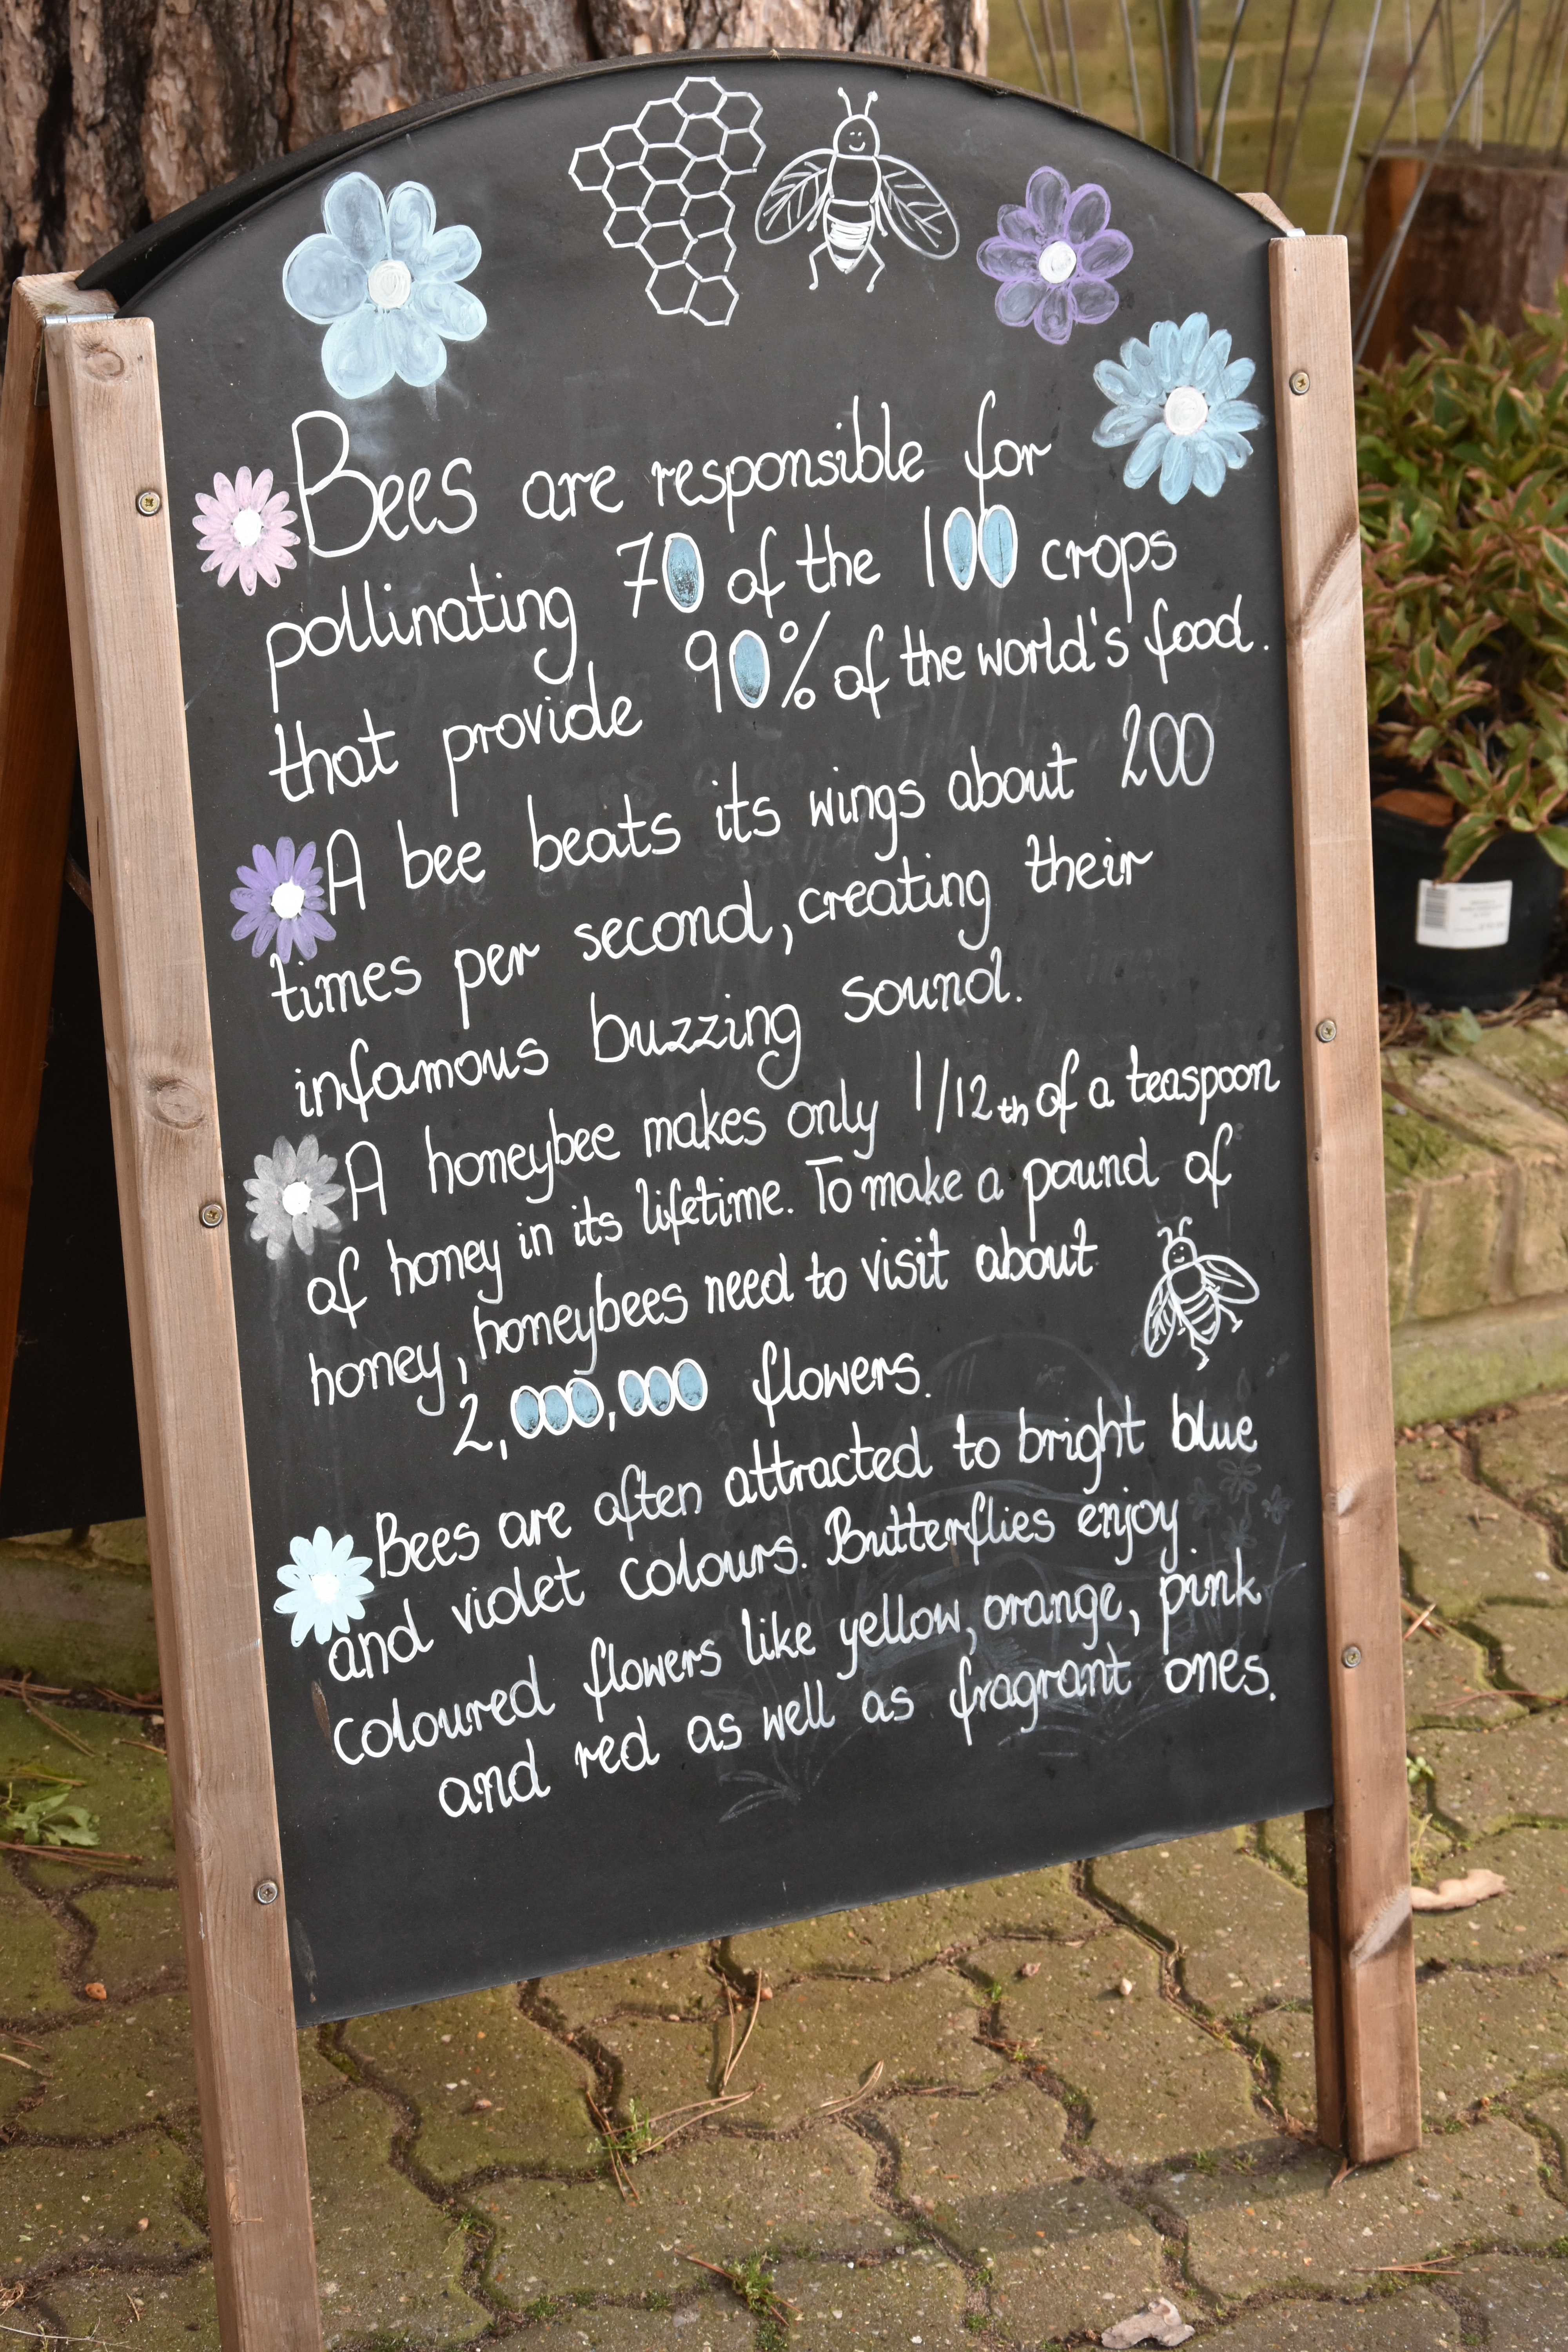 Bees are responsible for
pollinating 70 of the 100 crops
that provide 90% of the world's food.
A bee beats its wings about 200
times per second, creating their
infamous buzzing sound.
A honeybee makes only 1/12th of a teaspoon
of honey in its lifetime. To make a pound of
honey, honeybees need to visit about
2,000,000 flowers.
Bees are often attracted to bright blue
and violet colours. Butterflies enjoy
coloured flowers like yellow, orange, pink
and red as well as fragrant ones.